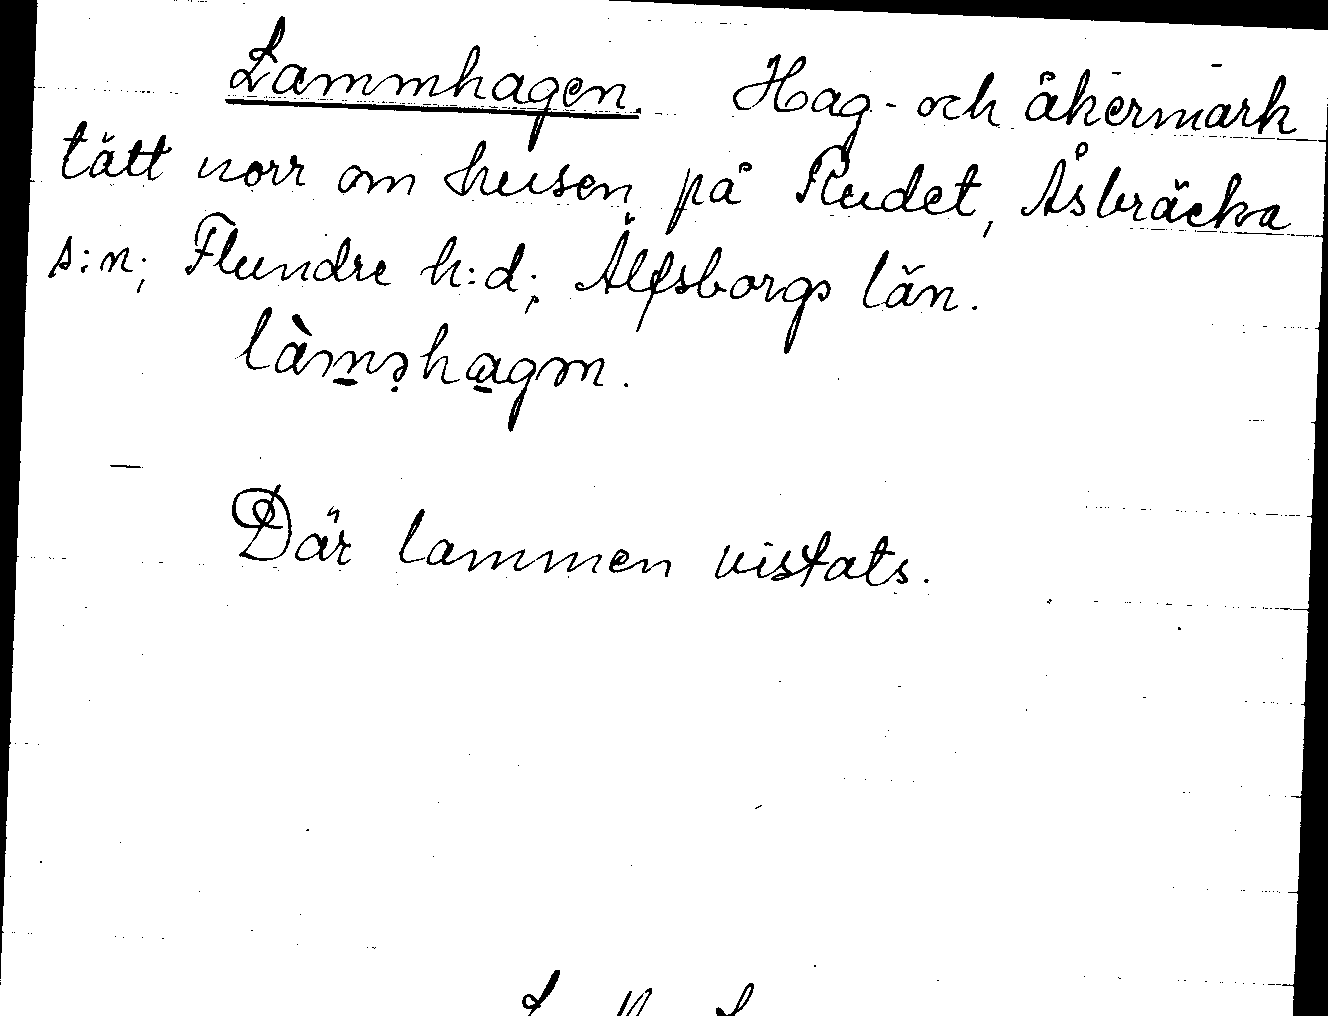 Lammhagen. Hag- och åkermark
tätt norr om husen på Rudet, Åsbräcka
s:n; Flundre h:d; Älfsborgs län.
làm̲ə̣ha̲gən.
Där lammen vistats.